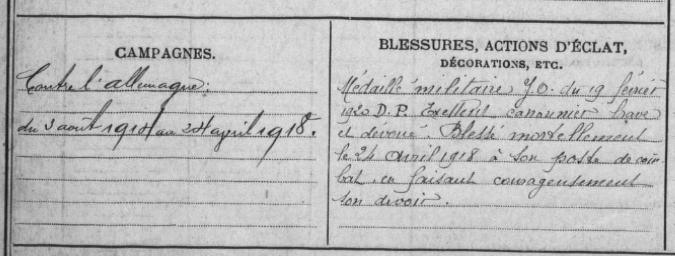 CAMPAGNES.
Contre l'allemagne:
du 3 août 1914 au 24 april 1918.
BLESSURES, ACTIONS D'ÉCLAT,
DÉCORATIONS, ETC.
Médaille militaire J.O. du 19 février
1920 D.P. Excellent canonnier brave
et dévoué. Blessé mortellement
le 24 avril 1918 à son poste de com
bat, en faisant courageusement
son devoir.